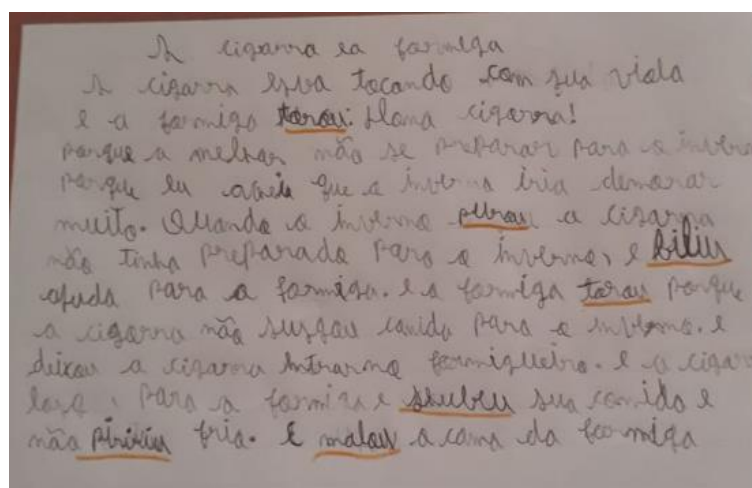 A cigarra ea formiga
A cigarra esva tocando com sua viola
e a formiga torou: dona cigarra!
porque a melhor não se preparar para o inverno
porque eu achei que o inverno iria demorar
muito. Quando o inverno a cigarra
não tinha preparado para o inverno, e biliu
ajuda para a formiga. e a formiga torou porque
a cigarra não comida para o inverno. e
deixou a cigarra entrar no formigueiro. e a cigar
para a formiga e sua comida e
não fria. E malou a cama da formiga